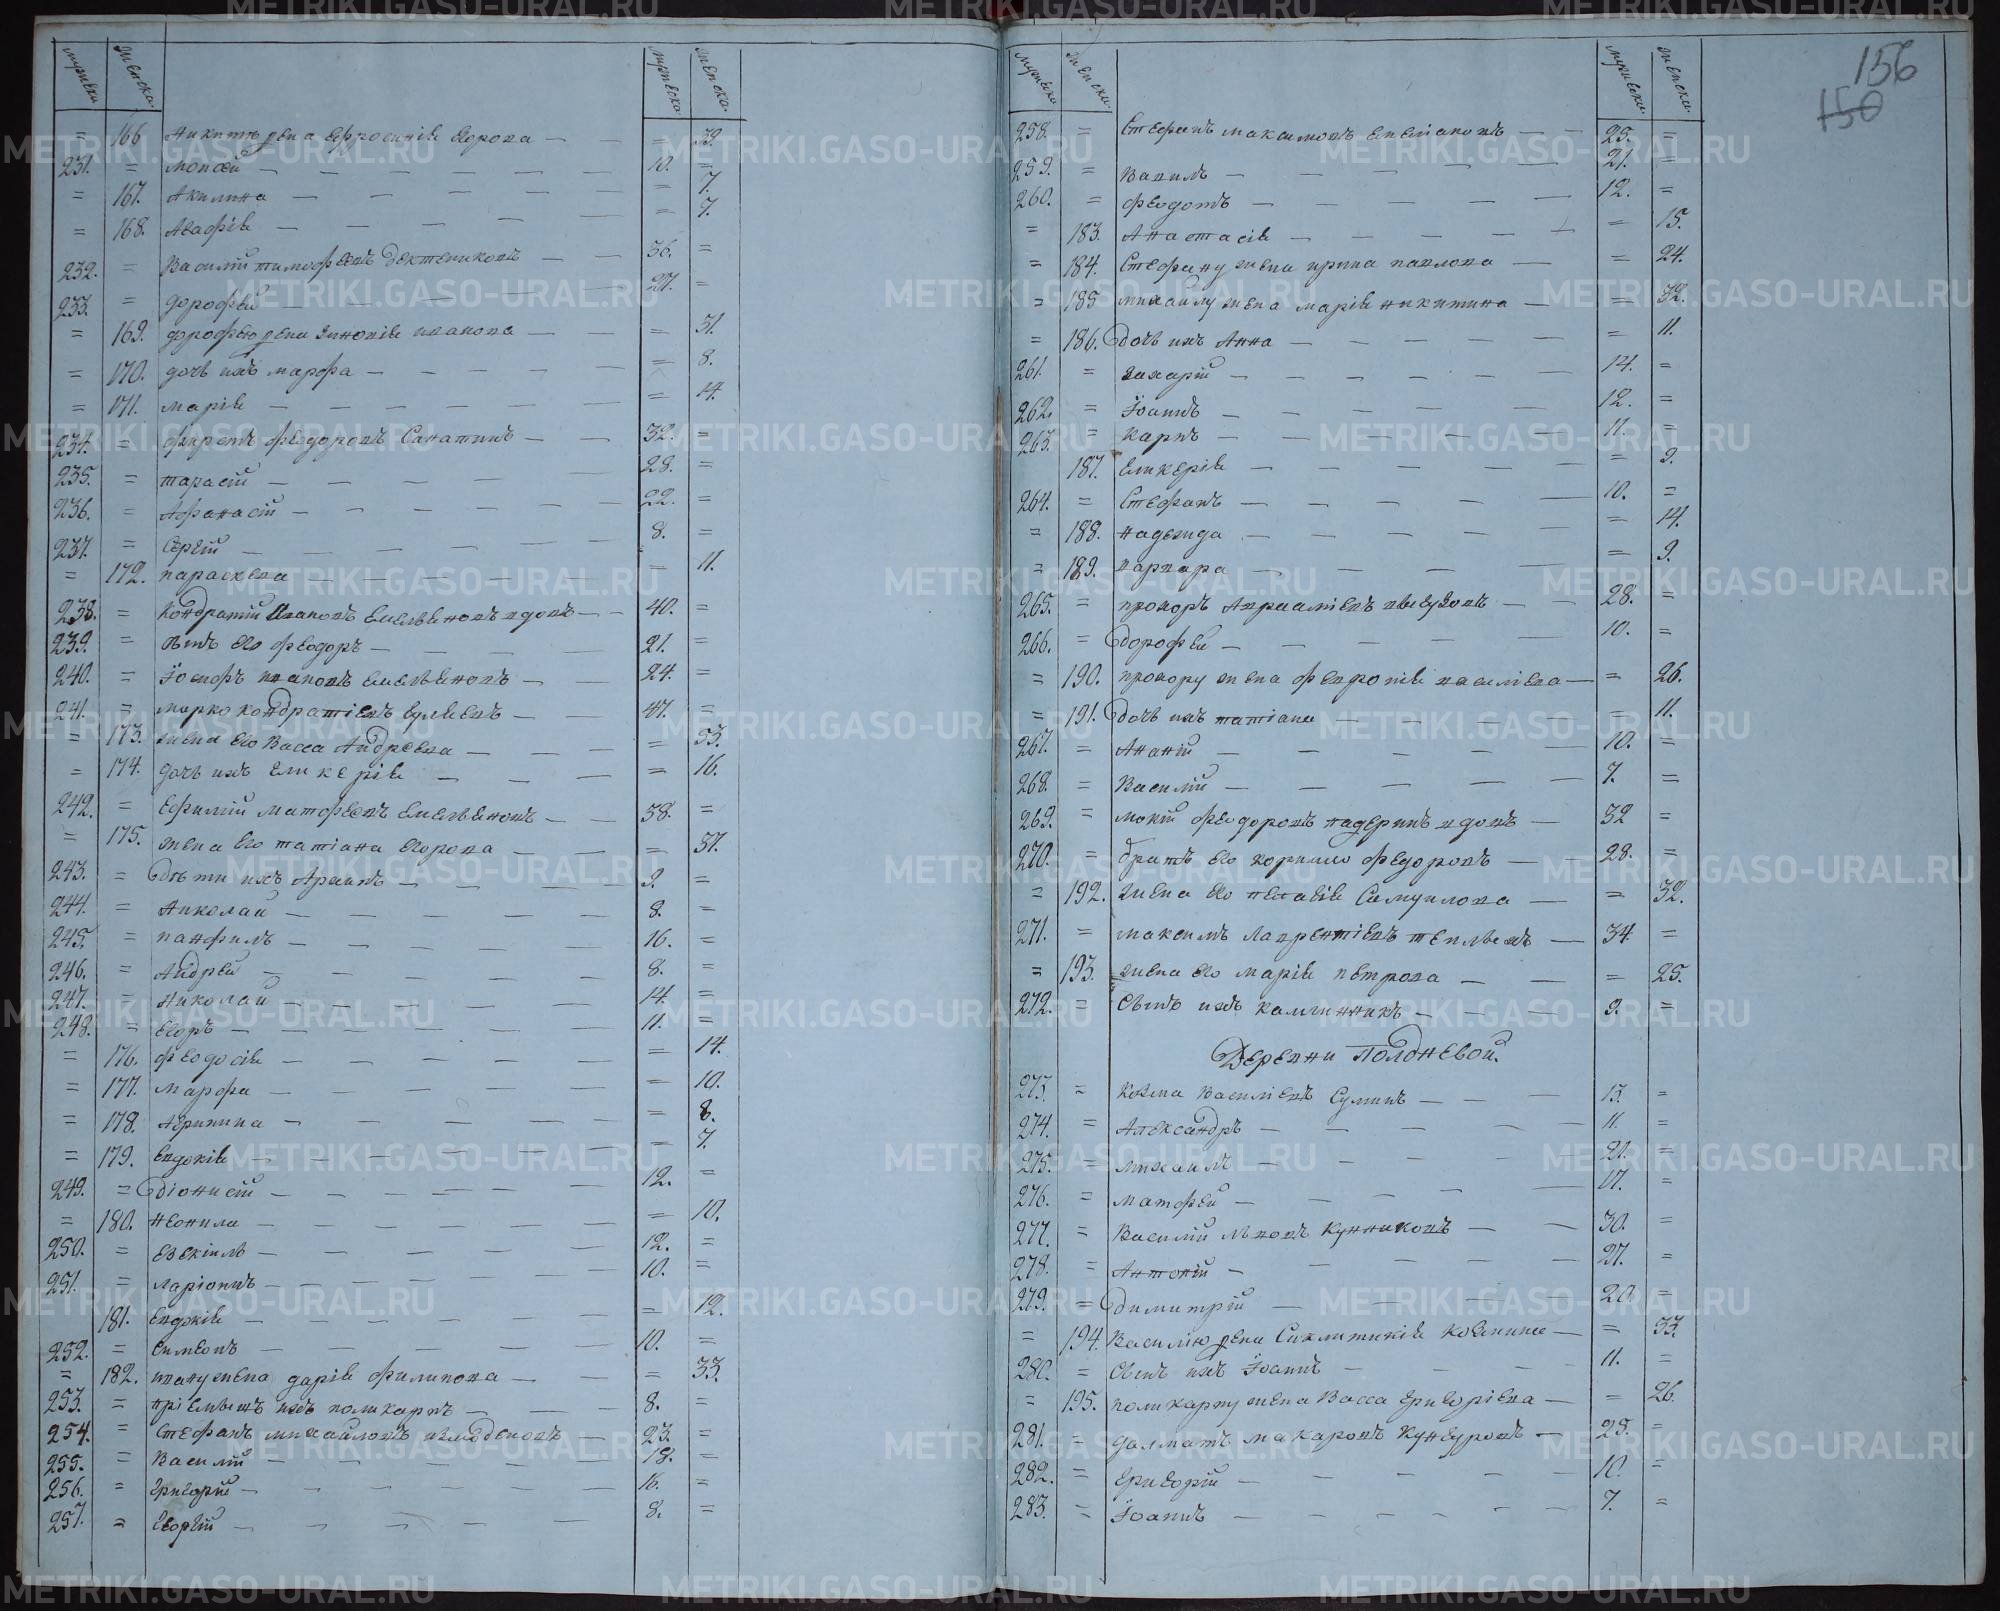 мужеска женска мужеска женска
= 166 Никитѣ жена Ефросинія Егорова = 39.
231. = Моисей 10. =
= 167. Акилина = 7.
= 168. Агафія = 7.
232. = Василій Тимофеевъ 36. =
233. = Дорофей 27. =
= 169. Дорофею жена Зиновія Иванова = 31.
= 170. дочь ихъ Марфа = 8.
= 171. Марія = 14.
234. = Фирстъ Феодоровъ 32. =
235. = Тарасій 28. =
236. = Афанасій 22. =
237. = Сергій 8. =
= 172. Параскева = 11.
238. = Кондратий Ивановъ Емельяновъ вдовъ 40. =
239. = сынъ его Феодоръ 21. =
240. = Іосифъ Ивановъ Емельяновъ 24. =
241. = Марко Кондратіевъ 47. =
= 173. жена его Васса Андреева = 53.
= 174. дочь ихъ Гликерія = 16.
242. = Ефимій Матфеевъ Емельяновъ 38. =
= 175. жена его Татіана Егорова = 37.
243. = дѣти ихъ 9. =
244. = Николай 8. =
245. = Панфилъ 16. =
246. = Андрей 8. =
247. = Николай 14. =
248. = Егоръ 11. =
= 176. Феодосія = 14.
= 177. Марфа = 10.
= 178. Агрипина = 8.
= 179. Евдокія = 7.
249. = Діонисій 12. =
= 180. Неонила = 10.
250. = Езекіилъ 12. =
251. = Ларіонъ 10. =
181. Евдокія = 12.
252. = Симеонъ 10. =
= 182. Ивану жена Дарія Филипова = 33.
253. = пріемышъ ихъ Поликарпъ 8. =
254. = Стефанъ Михайловъ 23. =
255. = Василій 18. =
256. = Григорій 16. =
257. = Георгій 8. =
156
150
мужеска женска мужеска женска
258. = Стефанъ Максимовъ 25. =
259. = Вавилъ 21. =
260. = Феодотъ 12. =
= 183. Анастасія = 15.
= 184. Стефану жена Ирина Павлова = 24.
= 185 Михаилу жена Марія Никитина = 32.
= 186. дочь ихъ Анна = 11.
261. = Захарій 14. =
262. = Іоаннъ 12. =
263. = Карпъ 11. =
187. Гликерія = 9.
264. = Стефанъ 10. =
= 188. Надежда = 14.
= 189. Варвара = 9.
265. = Прохоръ Аврааміевъ 28. =
266. = Дорофей 10. =
= 190. Прохору жена Февронія Василіева = 26.
= 191. дочь ихъ Татіана = 11.
267. = Ананій 10. =
268. = Василій 7. =
269. = Мокій Феодоровъ Падеринъ вдовъ 32 =
270. = братъ его Корнило Федоровъ 28. =
= 192. жена его Пелагія Самуилова = 32.
271. = Максимъ Лаврентіевъ 34. =
= 193. жена его Марія Петрова = 25.
272. = сынъ ихъ Каллинникъ 9. =
Деревни Полдневой.
273. = Козма Василіевъ Суминъ 13. =
274. = Александръ 11. =
275. = Михаилъ 21. =
276. = Матфей 17. =
277. = Василій Львовъ Кунниковъ 30. =
278. = Антоній 27. =
279. = Димитрій 20. =
= 194. Василію жена Сиклитикія Козмина = 33.
280. = сынъ ихъ Іоаннъ 11. =
= 195. Поликарпу жена Васса Григоріева = 26.
281. = Далматъ Макаровъ Кунгуровъ 25. =
282. = Григорій 10. =
283. = Іоаннъ 7. =